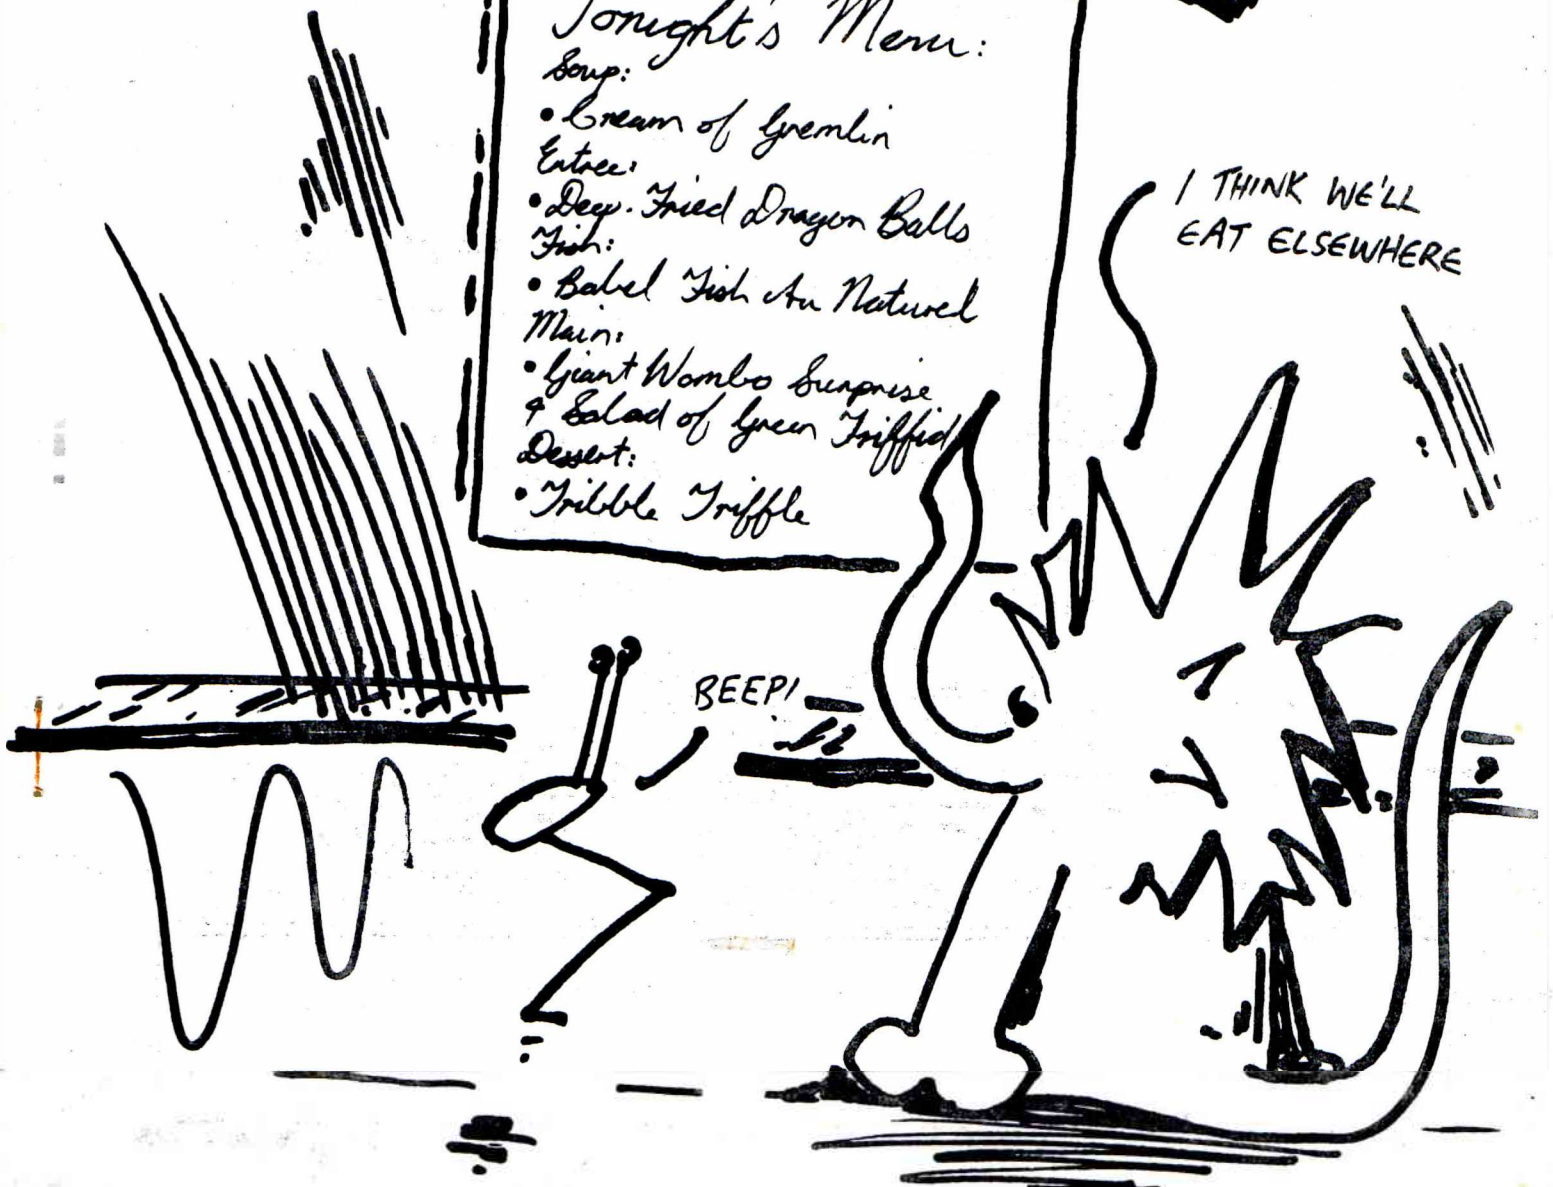 Tonight's Menu:
Soup:
• Cream of Gremlin
Entree:
• Deep-Fried Dragon Balls
Fish:
• Babel Fish Au Naturel
Main:
• Giant Wombo Surprise
& Salad of Green Triffid
Dessert:
• Tribble Triffle
I THINK WE'LL
EAT ELSEWHERE
BEEP!